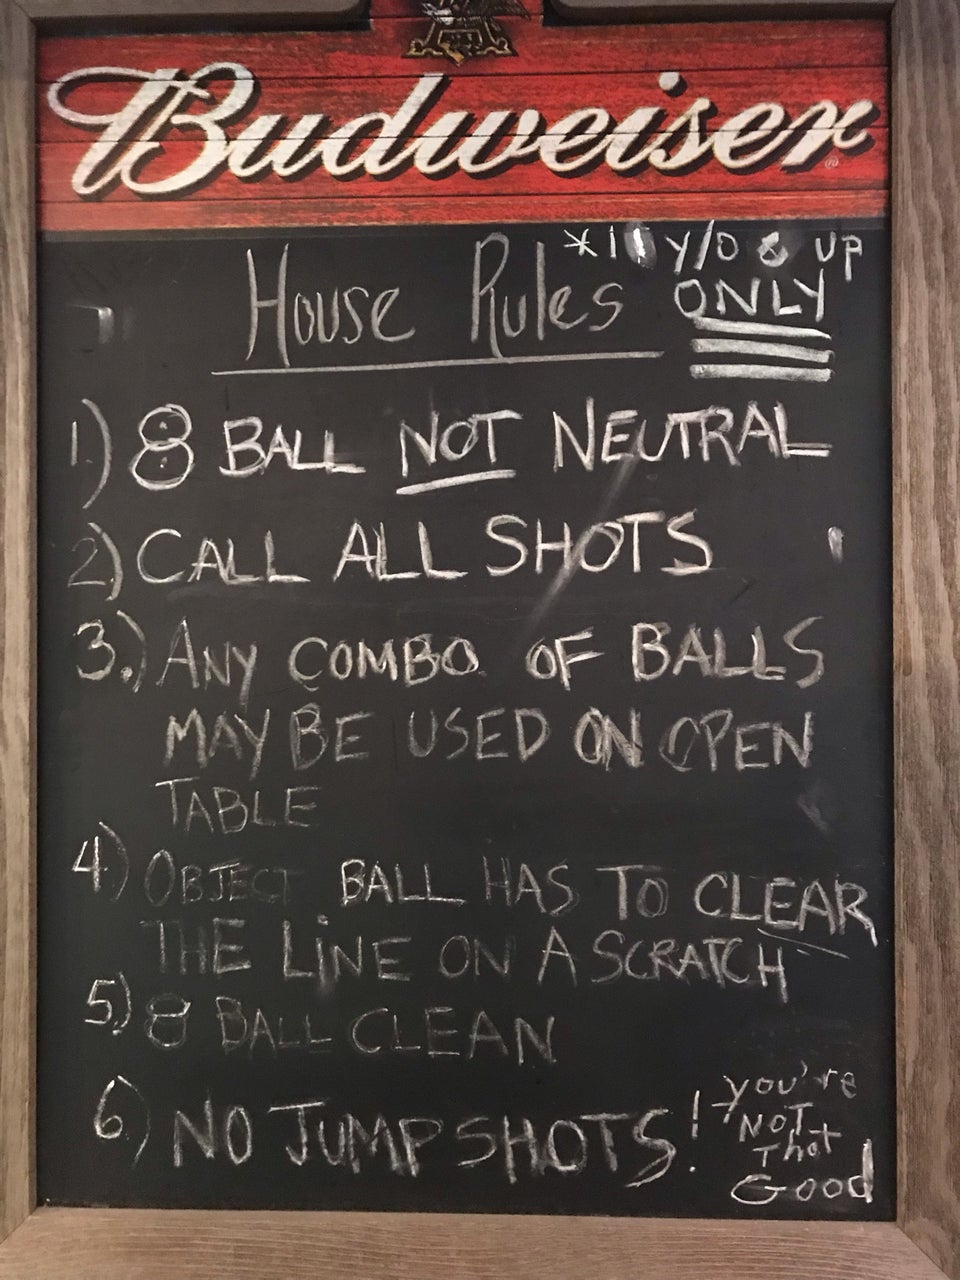 Budweiser
House Rules
y/o & UP
ONLY
1.) 8 BALL NOT NEUTRAL
2) CALL ALL SHOTS
3.) ANY COMBO OF BALLS
MAY BE USED ON OPEN
TABLE
4) OBJECT BALL HAS TO CLEAR
THE LINE ON A SCRATCH
5.) 8 BALL CLEAN
6) NO JUMP SHOTS!
you're
NOT
That
Good